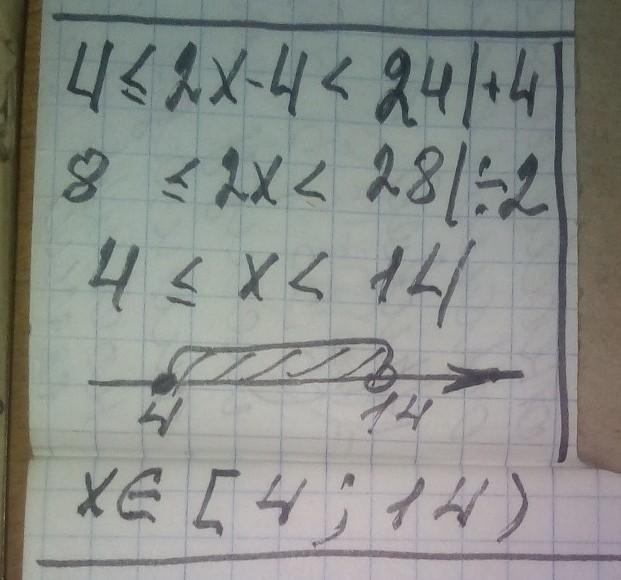 4 ≤ 2x - 4 < 24 | +4
8 ≤ 2x < 28 | ÷2
4 ≤ x < 14
4 14
x ∈ [4; 14)